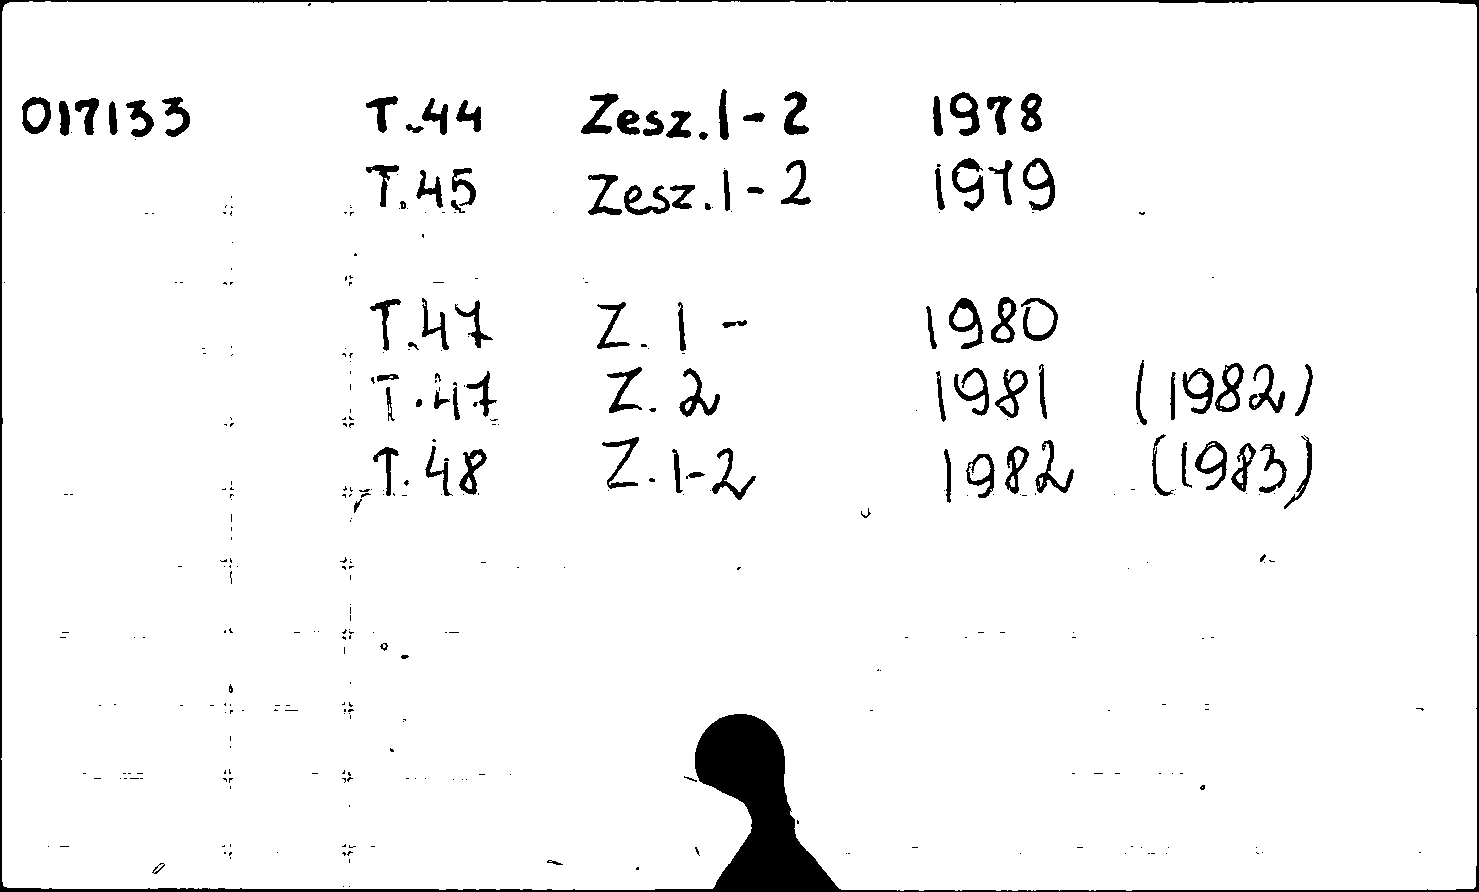 017133 T.44 Zesz.1-2 1978
T.45 Zesz.1-2 1979
T.47 Z. 1 - 1980
T.47 Z. 2 1981 (1982)
T.48 Z.1-2 1982 (1983)